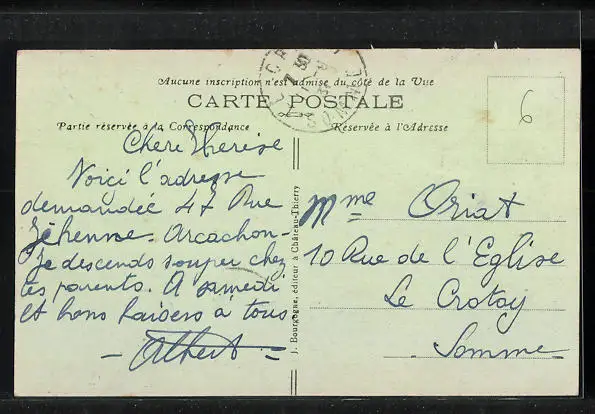 Aucune inscription n'est admise du côté de la Vue
CARTE POSTALE
Partie réservée à la Correspondance
Réservée à l'Adresse
6
Chère Thérèse
Voici l'adresse
demandée 47 Rue
Jéhenne. Arcachon-
Je descends souper chez
tes parents. A samedi
et bons baisers à tous
- Albert -
J. Bourgogne, éditeur à Château-Thierry
Mme Oriat
10 Rue de l'Eglise
Le Crotoy
Somme